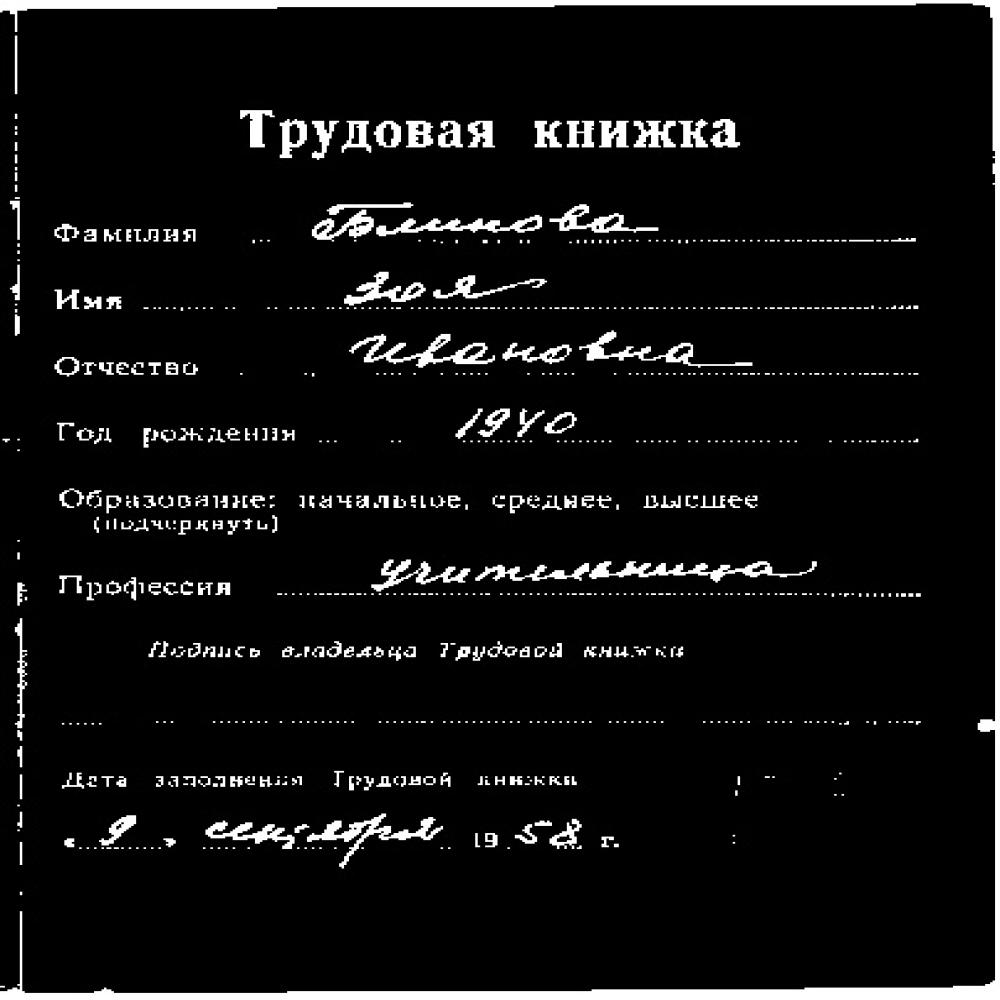 Трудовая книжка
Фамилия Блинова
Имя Зоя
Отчество Ивановна
Год рождения 1940
Образование: начальное, среднее, высшее
(подчеркнуть)
Профессия учительница
Подпись владельца Трудовой книжки
Дата заполнения Трудовой книжки
« 9 » сентября 1958 г.